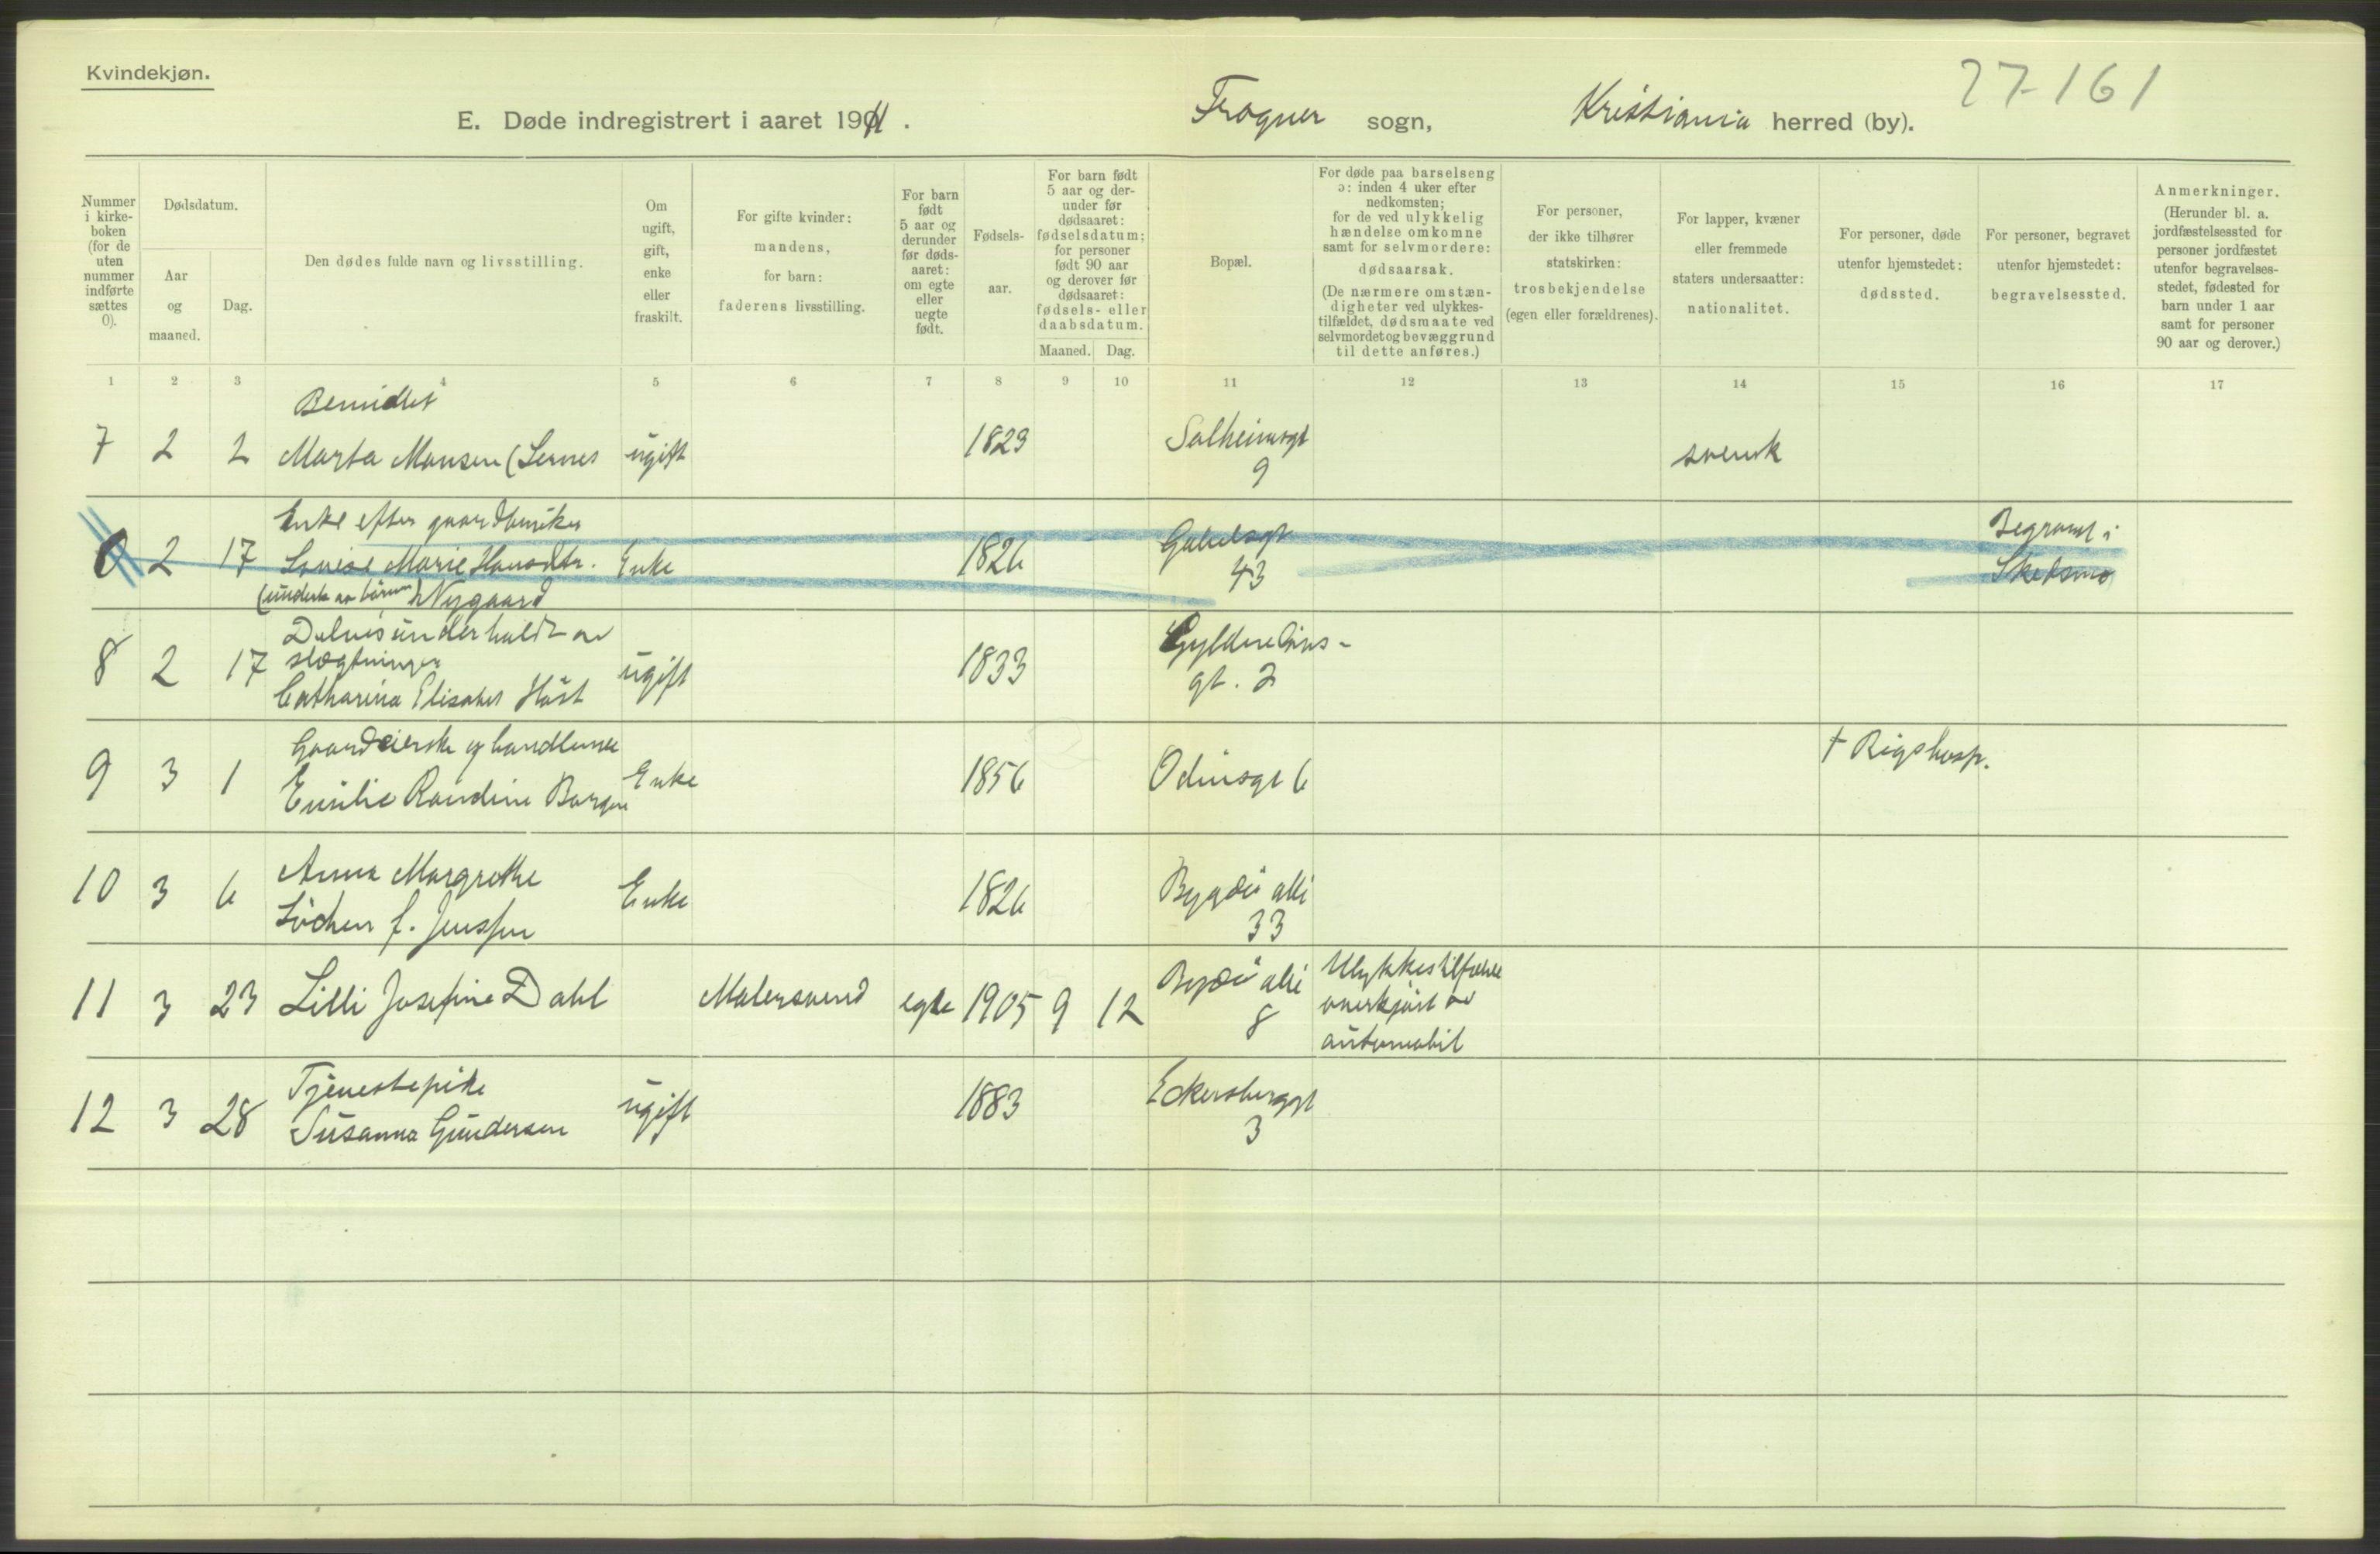 Kvindekjøn.
27-161
E. Døde indregistrert i aaret 1911. Frogner sogn, Kristiania herred (by).
Nummer i kirke-boken (for de uten nummer indførte sættes 0).
Dødsdatum.
Aar og maaned.
Dag.
Den dødes fulde navn og livsstilling.
Om ugift, gift, enke eller fraskilt.
For gifte kvinder: mandens, for barn: faderens livsstilling.
For barn født 5 aar og derunder før døds-aaret: om egte eller uegte født.
Fødsels-aar.
For barn født 5 aar og der-under før dødsaaret: fødselsdatum; for personer født 90 aar og derover før dødsaaret: fødsels- eller daabsdatum.
Maaned. Dag.
Bopæl.
For døde paa barselseng ɔ: inden 4 uker efter nedkomsten; for de ved ulykkelig hændelse omkomne samt for selvmordere: dødsaarsak. (De nærmere omstæn-digheter ved ulykkes-tilfældet, dødsmaate ved selvmordet og bevæggrund til dette anføres.)
For personer, der ikke tilhører statskirken: trosbekjendelse (egen eller forældrenes).
For lapper, kvæner eller fremmede staters undersaatter: nationalitet.
For personer, døde utenfor hjemstedet: dødssted.
For personer, begravet utenfor hjemstedet: begravelsessted.
Anmerkninger. (Herunder bl. a. jordfæstelsessted for personer jordfæstet utenfor begravelses-stedet, fødested for barn under 1 aar samt for personer 90 aar og derover.)
1 2 3 4 5 6 7 8 9 10 11 12 13 14 15 16 17
Bemidlet
7 2 2 Marta Monsen ugift 1823 Solheimsgt 9 svensk
Enke efter gaardbruker
0 2 17 Lovise Marie Hansdtr. Enke 1826 Gabelsgt 43 Begravet i Skedsmo
(underh. av børn) Nygaard
Delvis underholdt av
slægtninger
8 2 17 Catharina Elisabet Høst ugift 1833 Gyldenløves-gt. 2
Gaardeierske og handlende
9 3 1 Emilie Randine Borgen Enke 1856 Odinsgt 6 † Rigshosp.
10 3 6 Anna Margrethe Enke 1826 Bygdø allé 33
Lochen f. Jenssen
11 3 23 Lilli Josefine Dahl Malersvend egte 1905 9 12 Bygdø allé 8 Ulykkestilfælde
overkjørt av
automobil
Tjenestepike
12 3 28 Susanna Gundersen ugift 1883 Eckersberggt 3